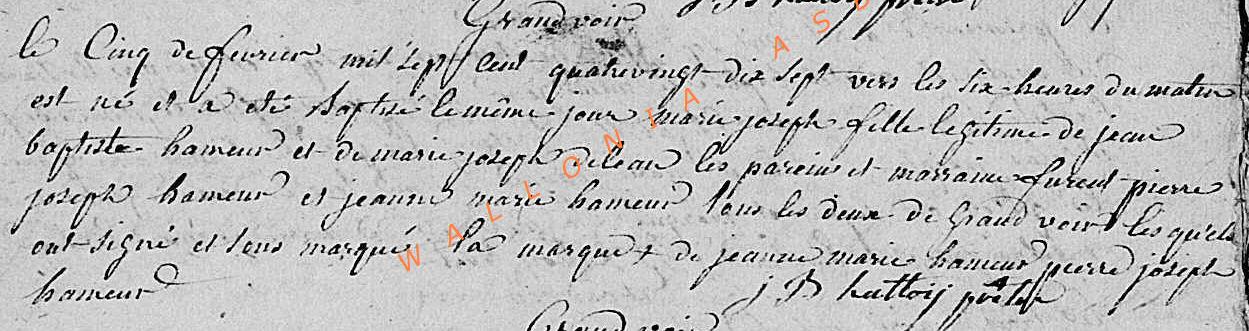 Grandvoir
le Cinq de fevrier mil sept cent quatrevingt dix sept vers les six heures du matin
est né et a eté baptisé le même jour marie joseph fille legitime de jean
baptiste hameur et de marie joseph delean les parein et marraine furent pierre
joseph hameur et jeanne marie hameur tous les deux de Grand voir les quels
ont signé et sous marqué la marque + de jeanne marie hameur pierre joseph
hameur
j B huttoij prêtre
Grandvoir
WALLONIA ASB